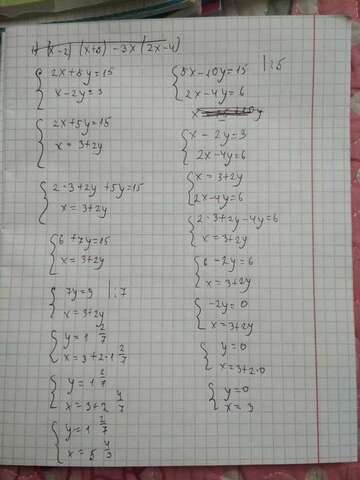 1) (x-2) (x+8) -3x (2x-4)
{ 2x+5y=15
x-2y=3
{ 2x+5y=15
x = 3+2y
{ 2·3+2y+5y=15
x = 3+2y
{ 6+7y=15
x=3+2y
{ 7y=9 |:7
x=3+2y
{ y=1 2/7
x=3+2·1 2/7
{ y=1 2/7
x=3+2 4/7
{ y=1 2/7
x=5 4/7
{ 5x-10y=15 |:5
2x-4y=6
{ x-2y=3
2x-4y=6
{ x=3+2y
2x-4y=6
{ 2·3+2y-4y=6
x=3+2y
{ 6-2y=6
x=3+2y
{ -2y=0
x=3+2y
{ y=0
x=3+2·0
{ y=0
x=3